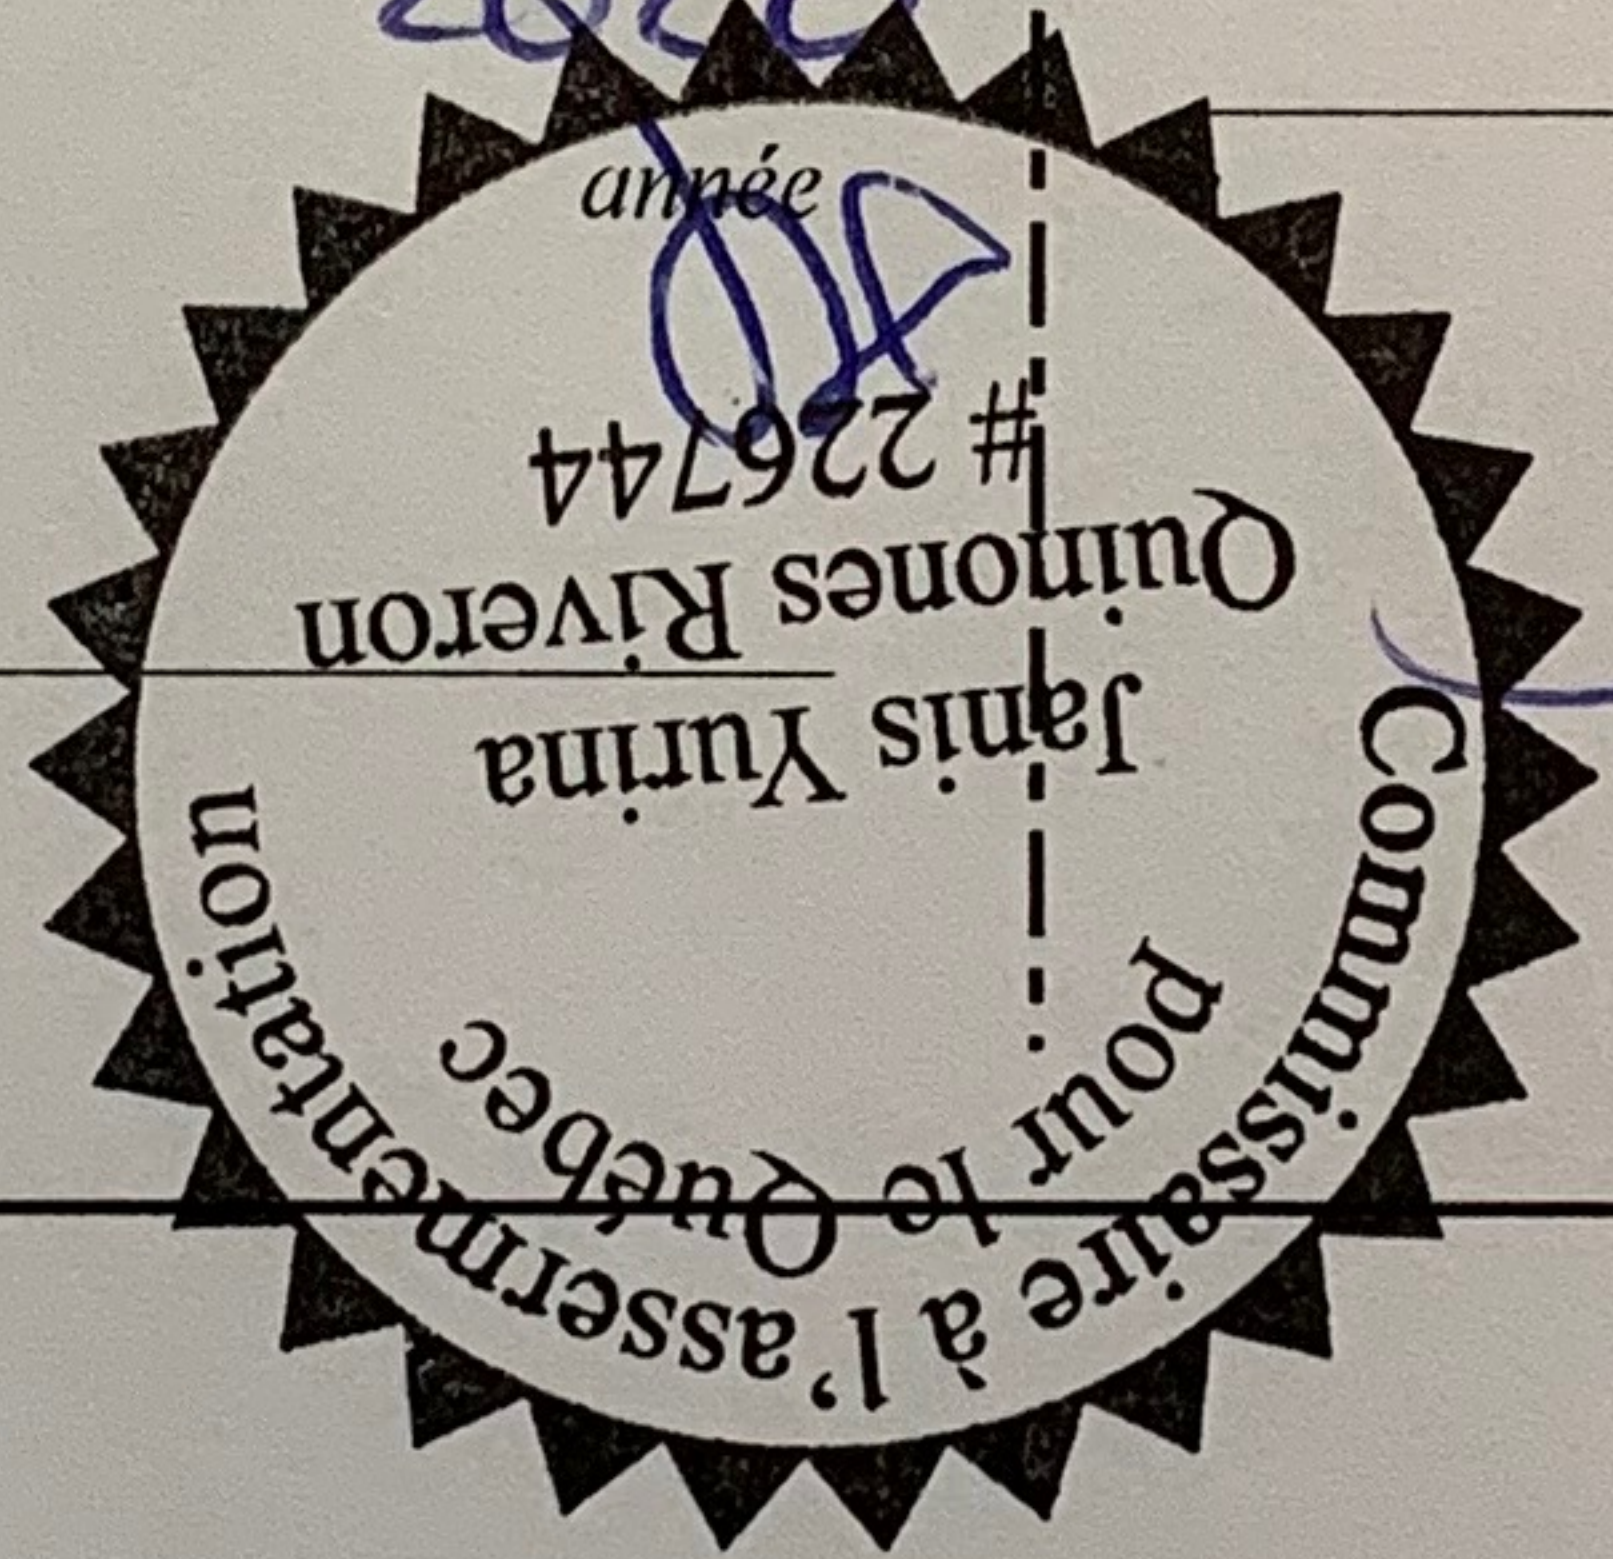 Commissaire à l'assermentation
pour le Québec
Janis Yurina
Quinones Riveron
# 226744
année